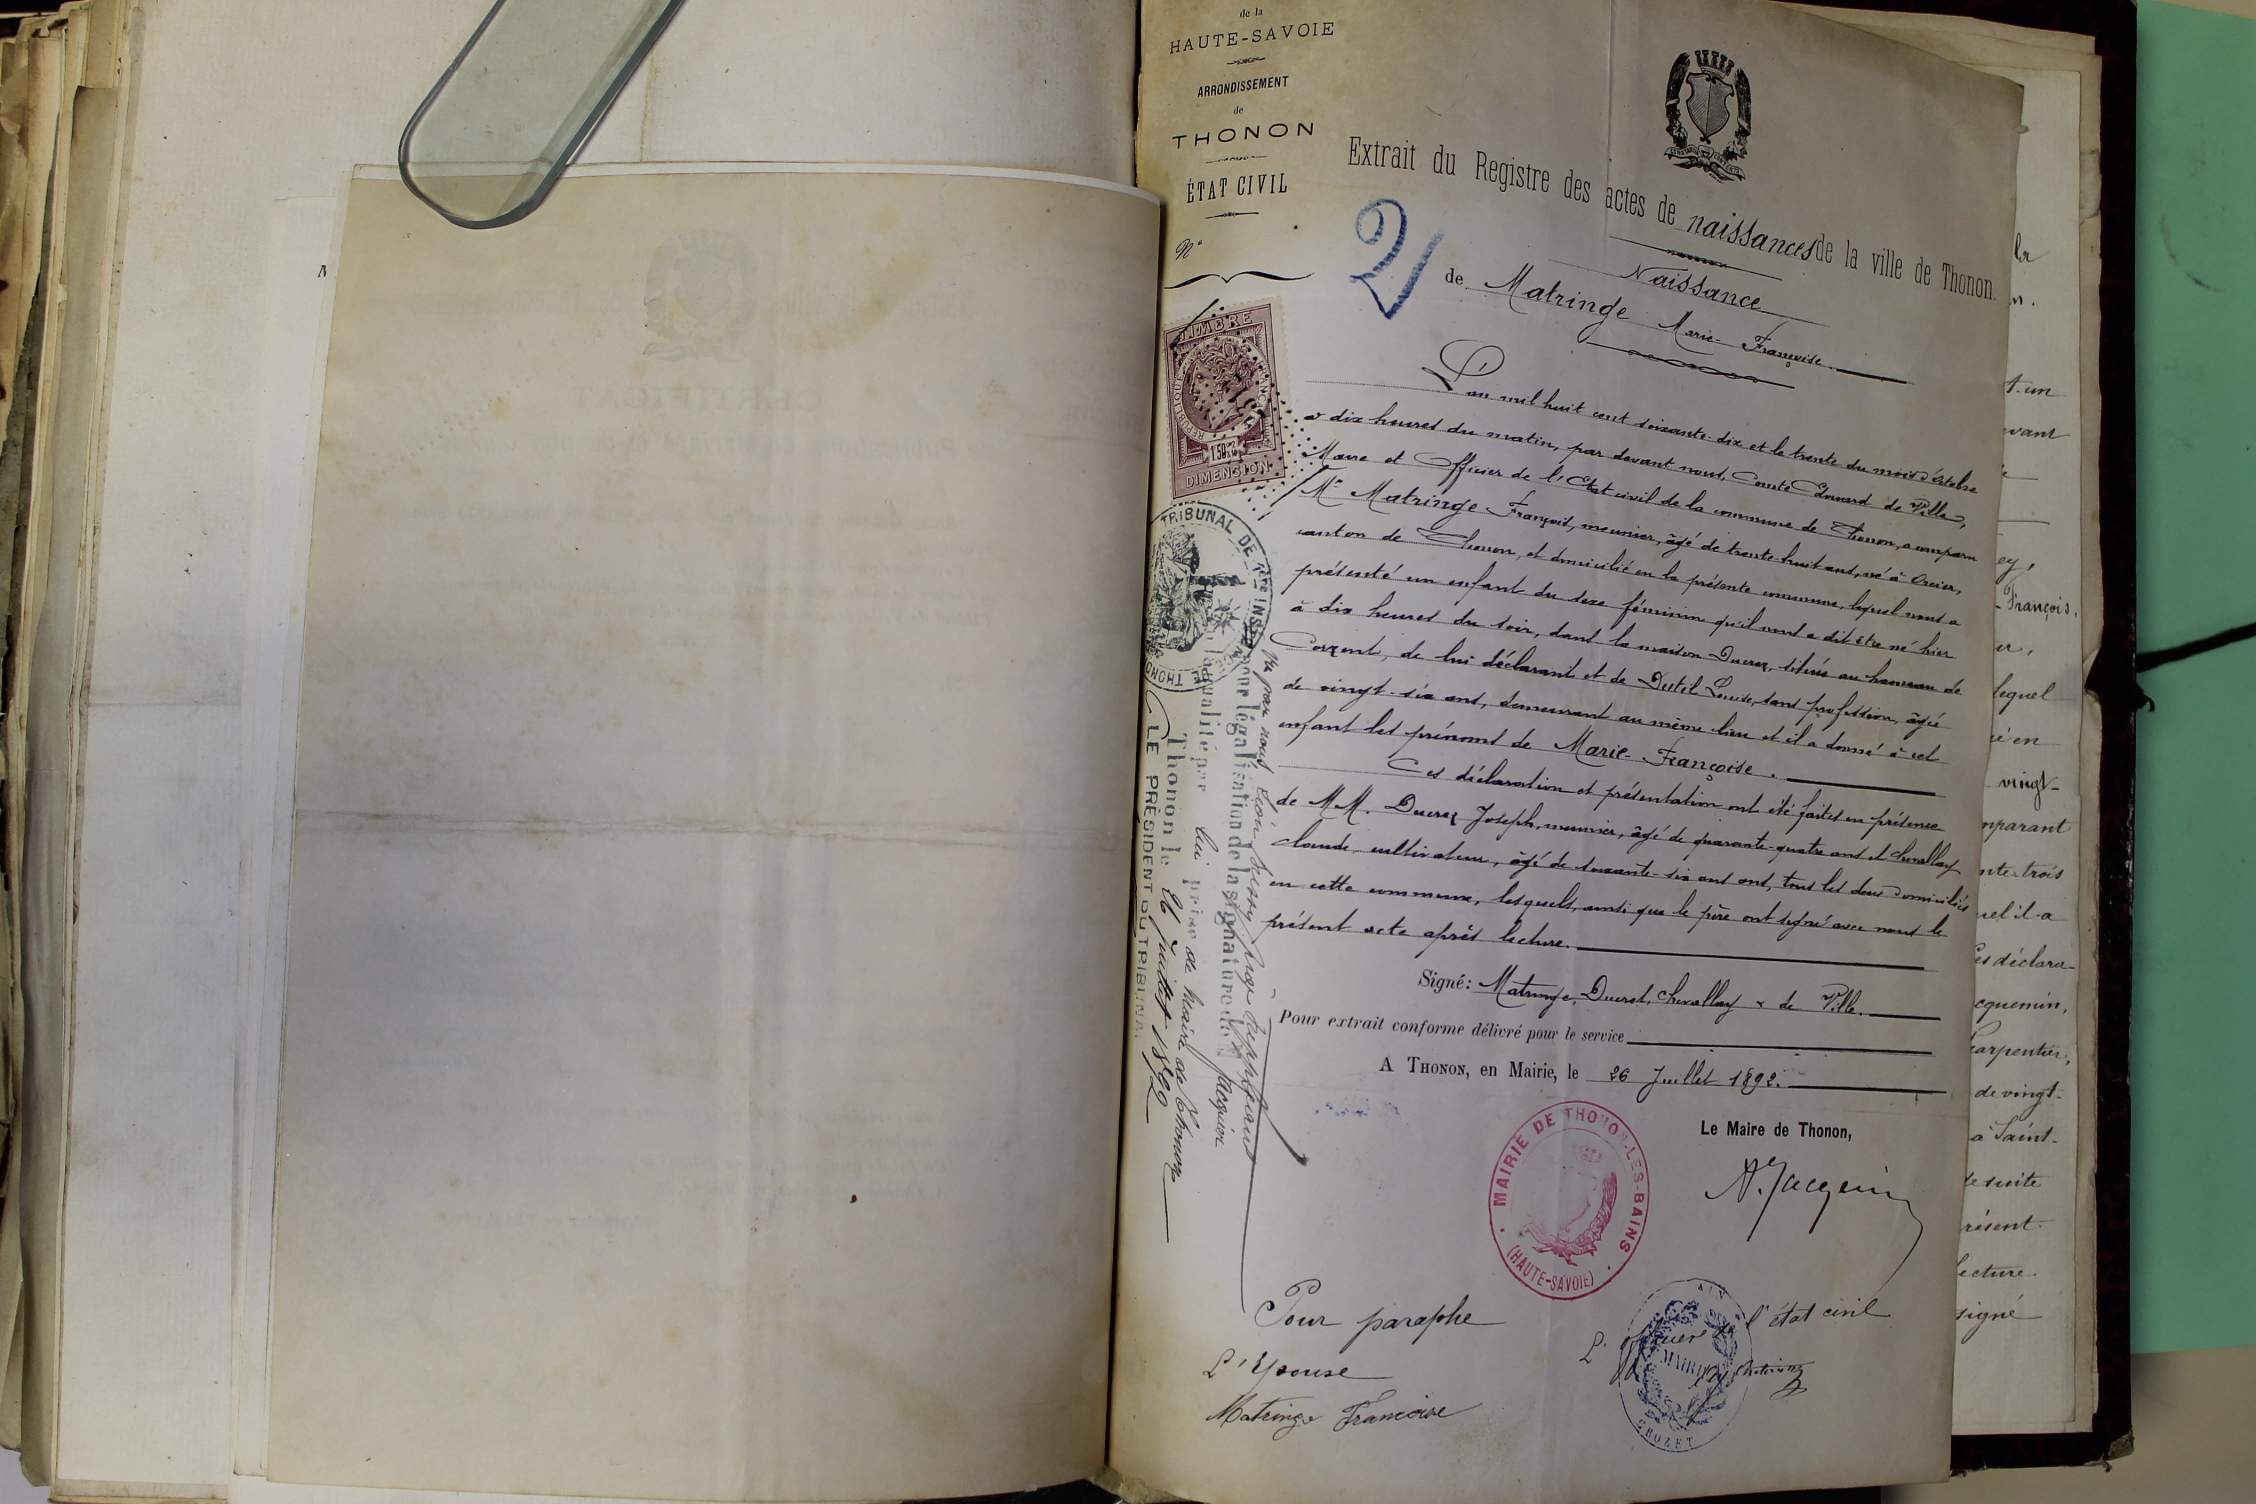 de la
HAUTE-SAVOIE
ARRONDISSEMENT
de
THONON
ÉTAT CIVIL
N°
Extrait du Registre des actes de naissances de la ville de Thonon
2
Naissance
de Matringe Marie-Françoise.
L'an mil huit cent soixante-dix et le trente du mois d'octobre
à dix heures du matin, par devant nous, Comte Edouard de Ville,
Maire et Officier de l'Etat civil de la commune de Thonon, a comparu
Mr Matringe François, meunier, âgé de trente-huit ans, né à Orcier,
canton de Thonon, et domicilié en la présente commune, lequel nous a
présenté un enfant du sexe féminin qu'il nous a dit être né hier
à dix heures du soir, dans la maison Ducrez, située au hameau de
Corzent, de lui déclarant et de Louise, sans profession, âgée
de vingt-six ans, demeurant au même lieu et il a donné à cet
enfant les prénoms de Marie-Françoise.
Ces déclaration et présentation ont été faites en présence
de MM. Ducrez Joseph, meunier, âgé de quarante-quatre ans et Chevallay
Claude, cultivateur, âgé de soixante-six ans ont, tous les deux domiciliés
en cette commune, lesquels, ainsi que le père ont signé avec nous le
présent acte après lecture.
Signé: Matringe, Ducret, Chevallay & de Ville.
Pour extrait conforme délivré pour le service
A THONON, en Mairie, le 26 Juillet 1892.
Le Maire de Thonon,
A. Jacquier
MAIRIE DE THONON-LES-BAINS
(HAUTE-SAVOIE)
TIMBRE
RÉPUBLIQUE FRANÇAISE
1.50
DIMENSION
TRIBUNAL DE 1ère INST
THONON
Vu par nous juge suppléant
pour légalisation de la signature de M Jacquier
la qualité par lui prise de Maire de Thonon
Thonon le 26 juillet 1892
LE PRÉSIDENT DU TRIBUNAL
Pour paraphe
L'Epouse
Matringe Francoise
L'officier de l'état civil
AIN
MAIRIE
CROZET
t-un
evant
ey,
- François,
er,
lequel
é en
vingt-
mparant
nte-trois
uel il a
Ces déclara-
cquemin,
harpentier,
de vingt-
à Saint-
de suite
résent
lecture
signé